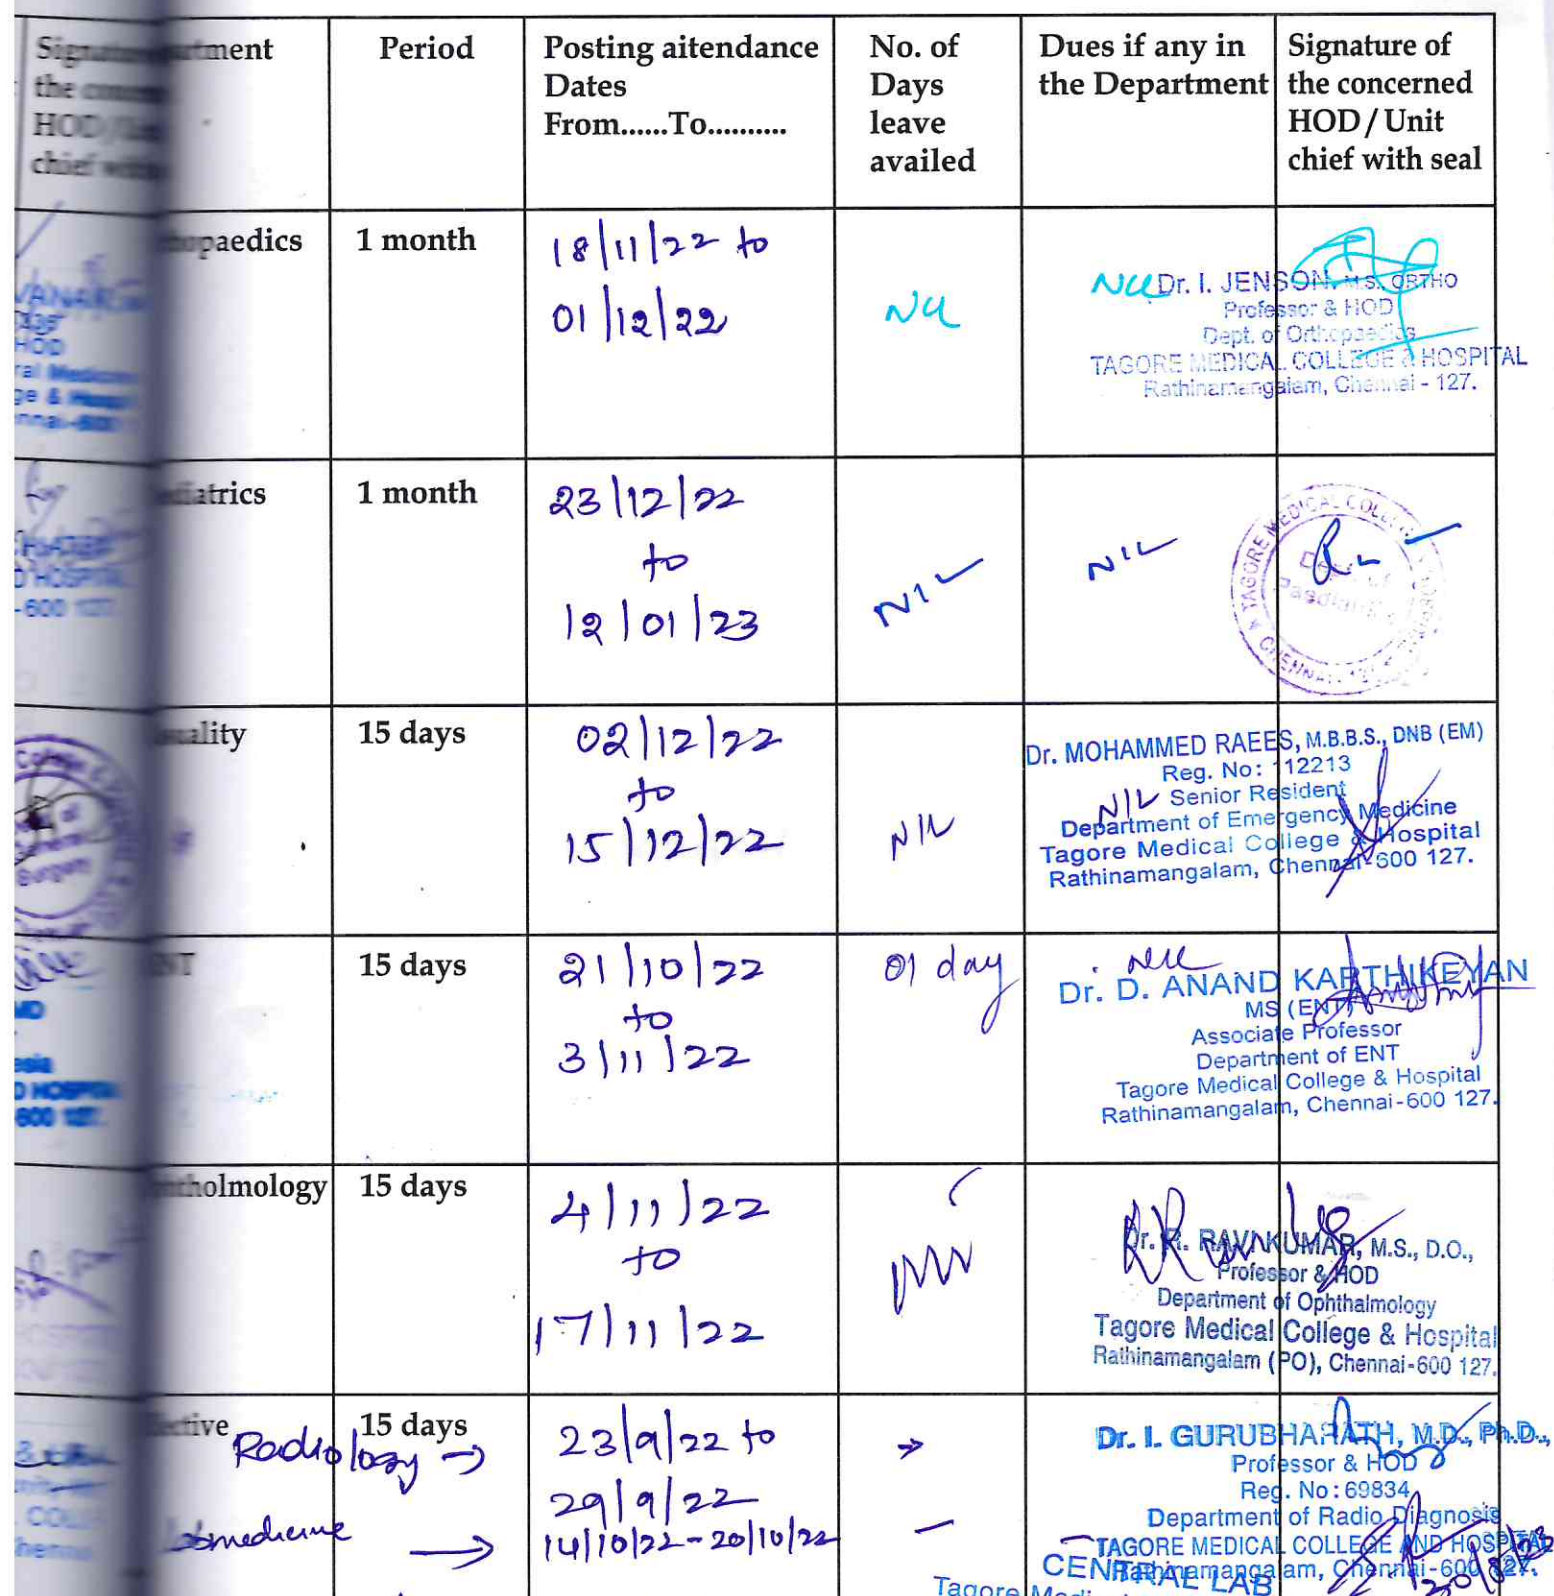 Period
Posting aitendance
Dates
From......To..........
No. of
Days
leave
availed
Dues if any in
the Department
Signature of
the concerned
HOD / Unit
chief with seal
opaedics
1 month
18/11/22 to
01/12/22
Nil
Nil
Dr. I. JENSON, M.S., ORTHO
Professor & HOD
Dept. of Orthopaedics
TAGORE MEDICAL COLLEGE & HOSPITAL
Rathinamangalam, Chennai - 127.
iatrics
1 month
23/12/22
to
12/01/23
NIL
NIL
TAGORE MEDICAL COLLEGE
CHENNAI
ality
15 days
02/12/22
to
15/12/22
NIL
Dr. MOHAMMED RAEES, M.B.B.S., DNB (EM)
Reg. No: 112213
NIL Senior Resident
Department of Emergency Medicine
Tagore Medical College & Hospital
Rathinamangalam, Chennai-600 127.
ENT
15 days
21/10/22
to
3/11/22
01 day
Nil
Dr. D. ANAND KARTHIKEYAN
MS (ENT)
Associate Professor
Department of ENT
Tagore Medical College & Hospital
Rathinamangalam, Chennai-600 127.
tholmology
15 days
4/11/22
to
17/11/22
Dr. R. RAVIKUMAR, M.S., D.O.,
Professor & HOD
Department of Ophthalmology
Tagore Medical College & Hospital
Rathinamangalam (PO), Chennai-600 127.
ective
15 days
Radiology →
23/9/22 to
29/9/22
Dr. I. GURUBHARATH, M.D., Ph.D.,
Professor & HOD
Reg. No: 69834
Department of Radio Diagnosis
TAGORE MEDICAL COLLEGE AND HOSPITAL
Rathinamangalam, Chennai-600 127.
Labmedicine →
14/10/22 - 20/10/22
CENTRAL LAB